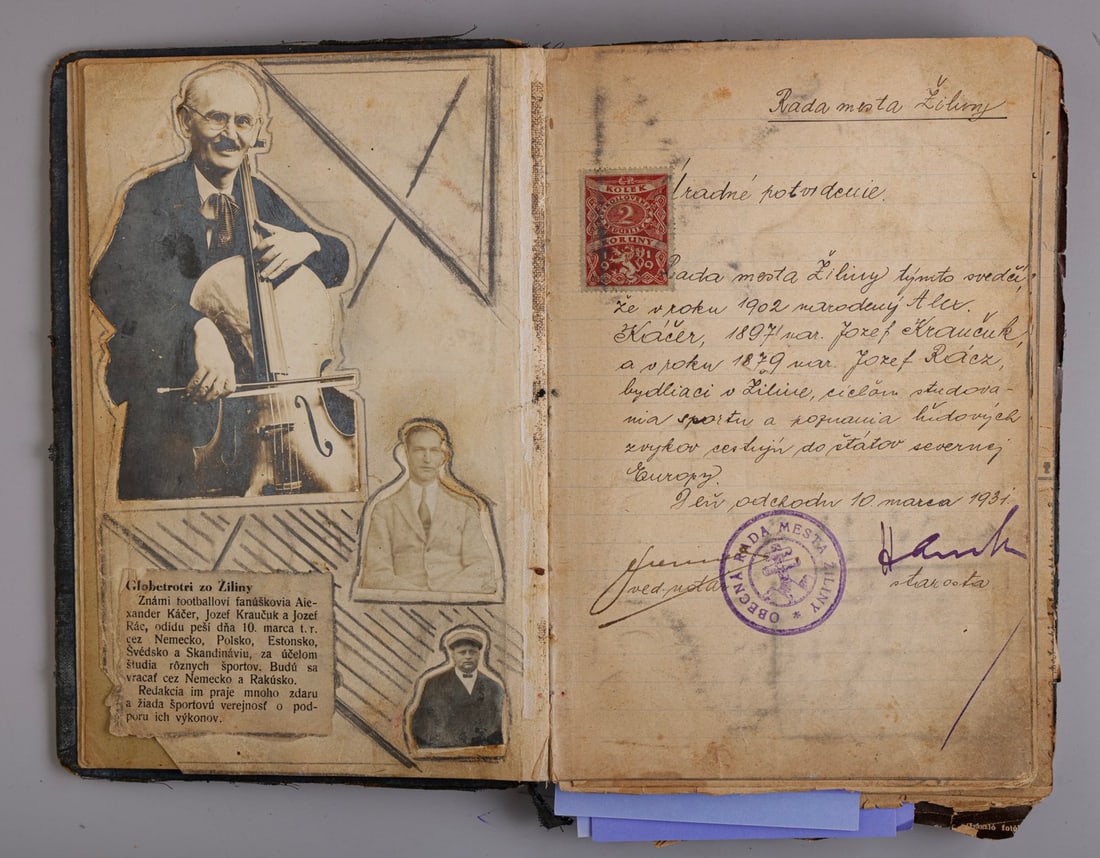 Globetrotri zo Žiliny
Známi footballoví fanúškovia Ale-
xander Káčer, Jozef Kraučuk a Jozef
Rác, odidu peší dňa 10. marca t. r.
cez Nemecko, Polsko, Estonsko,
Švédsko a Skandináviu, za účelom
študia rôznych športov. Budú sa
vracať cez Nemecko a Rakúsko.
Redakcia im praje mnoho zdaru
a žiada športovú verejnosť o pod-
poru ich výkonov.
Rada mesta Žiliny
Úradné potvrdenie.
Rada mesta Žiliny týmto svedčí,
že v roku 1902 narodený Alex.
Káčer, 1897 nar. Jozef Kraučuk,
a v roku 1879 nar. Jozef Rácz,
bydliaci v Žiline, cieľom študova-
nia športu a poznania ľudových
zvykov cestujú do štátov severnej
Európy.
Deň odchodu 10 marca 1931.
starosta
ČR
KOLEK
2
KORUNY
OBECNÁ RADA MESTA ŽILINY